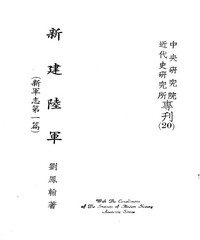 中央研究院
近代史研究所
專刊
(20)
新建陸軍
(新軍志第一篇)
劉鳳翰著
With the Compliments
of the Institute of Modern History
Academia Sinica